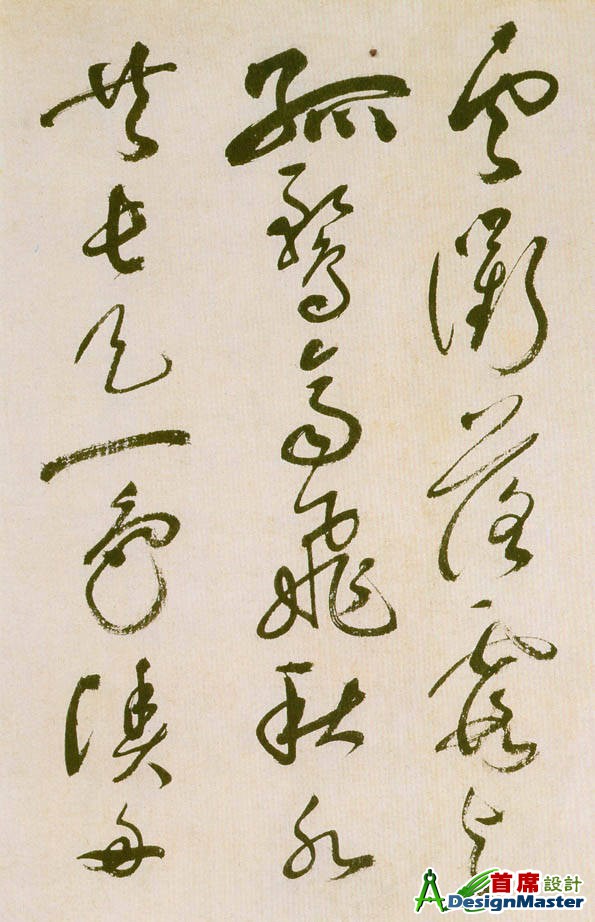 雲衢落霞與
孤鶩齊飛秋水
共長天一色漁舟
首席設計
ADesignMaster